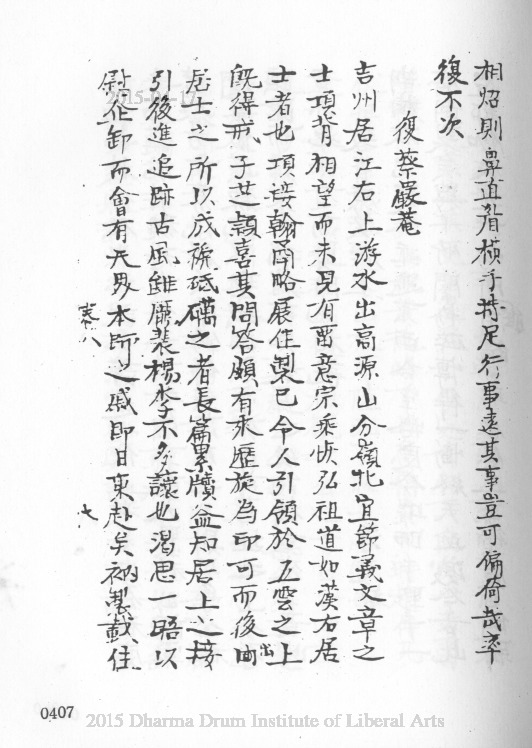 相炤則鼻直眉橫手持足行事遠其事豈可偏倚哉卒
復不次
復蔡嚴菴
吉州居江右上游水出高源山分嶺北宜節義文章之
士項背相望而未見有留意宗乘恢弘祖道如漢右居
士者也項接翰劄略展佳製已令人引領於五雲之上
既得戒子其穎喜其問答頗有來歷旋為印可而後出
居士之所以成褫砥礪之者長篇累牘益知居士之接
引後進追跡古風雖龐裴楊李不多讓也渴思一晤以
慰企卸而會有天界本師之戚即日東赴矣衲製載住
卷八
七
0407
2015 Dharma Drum Institute of Liberal Arts